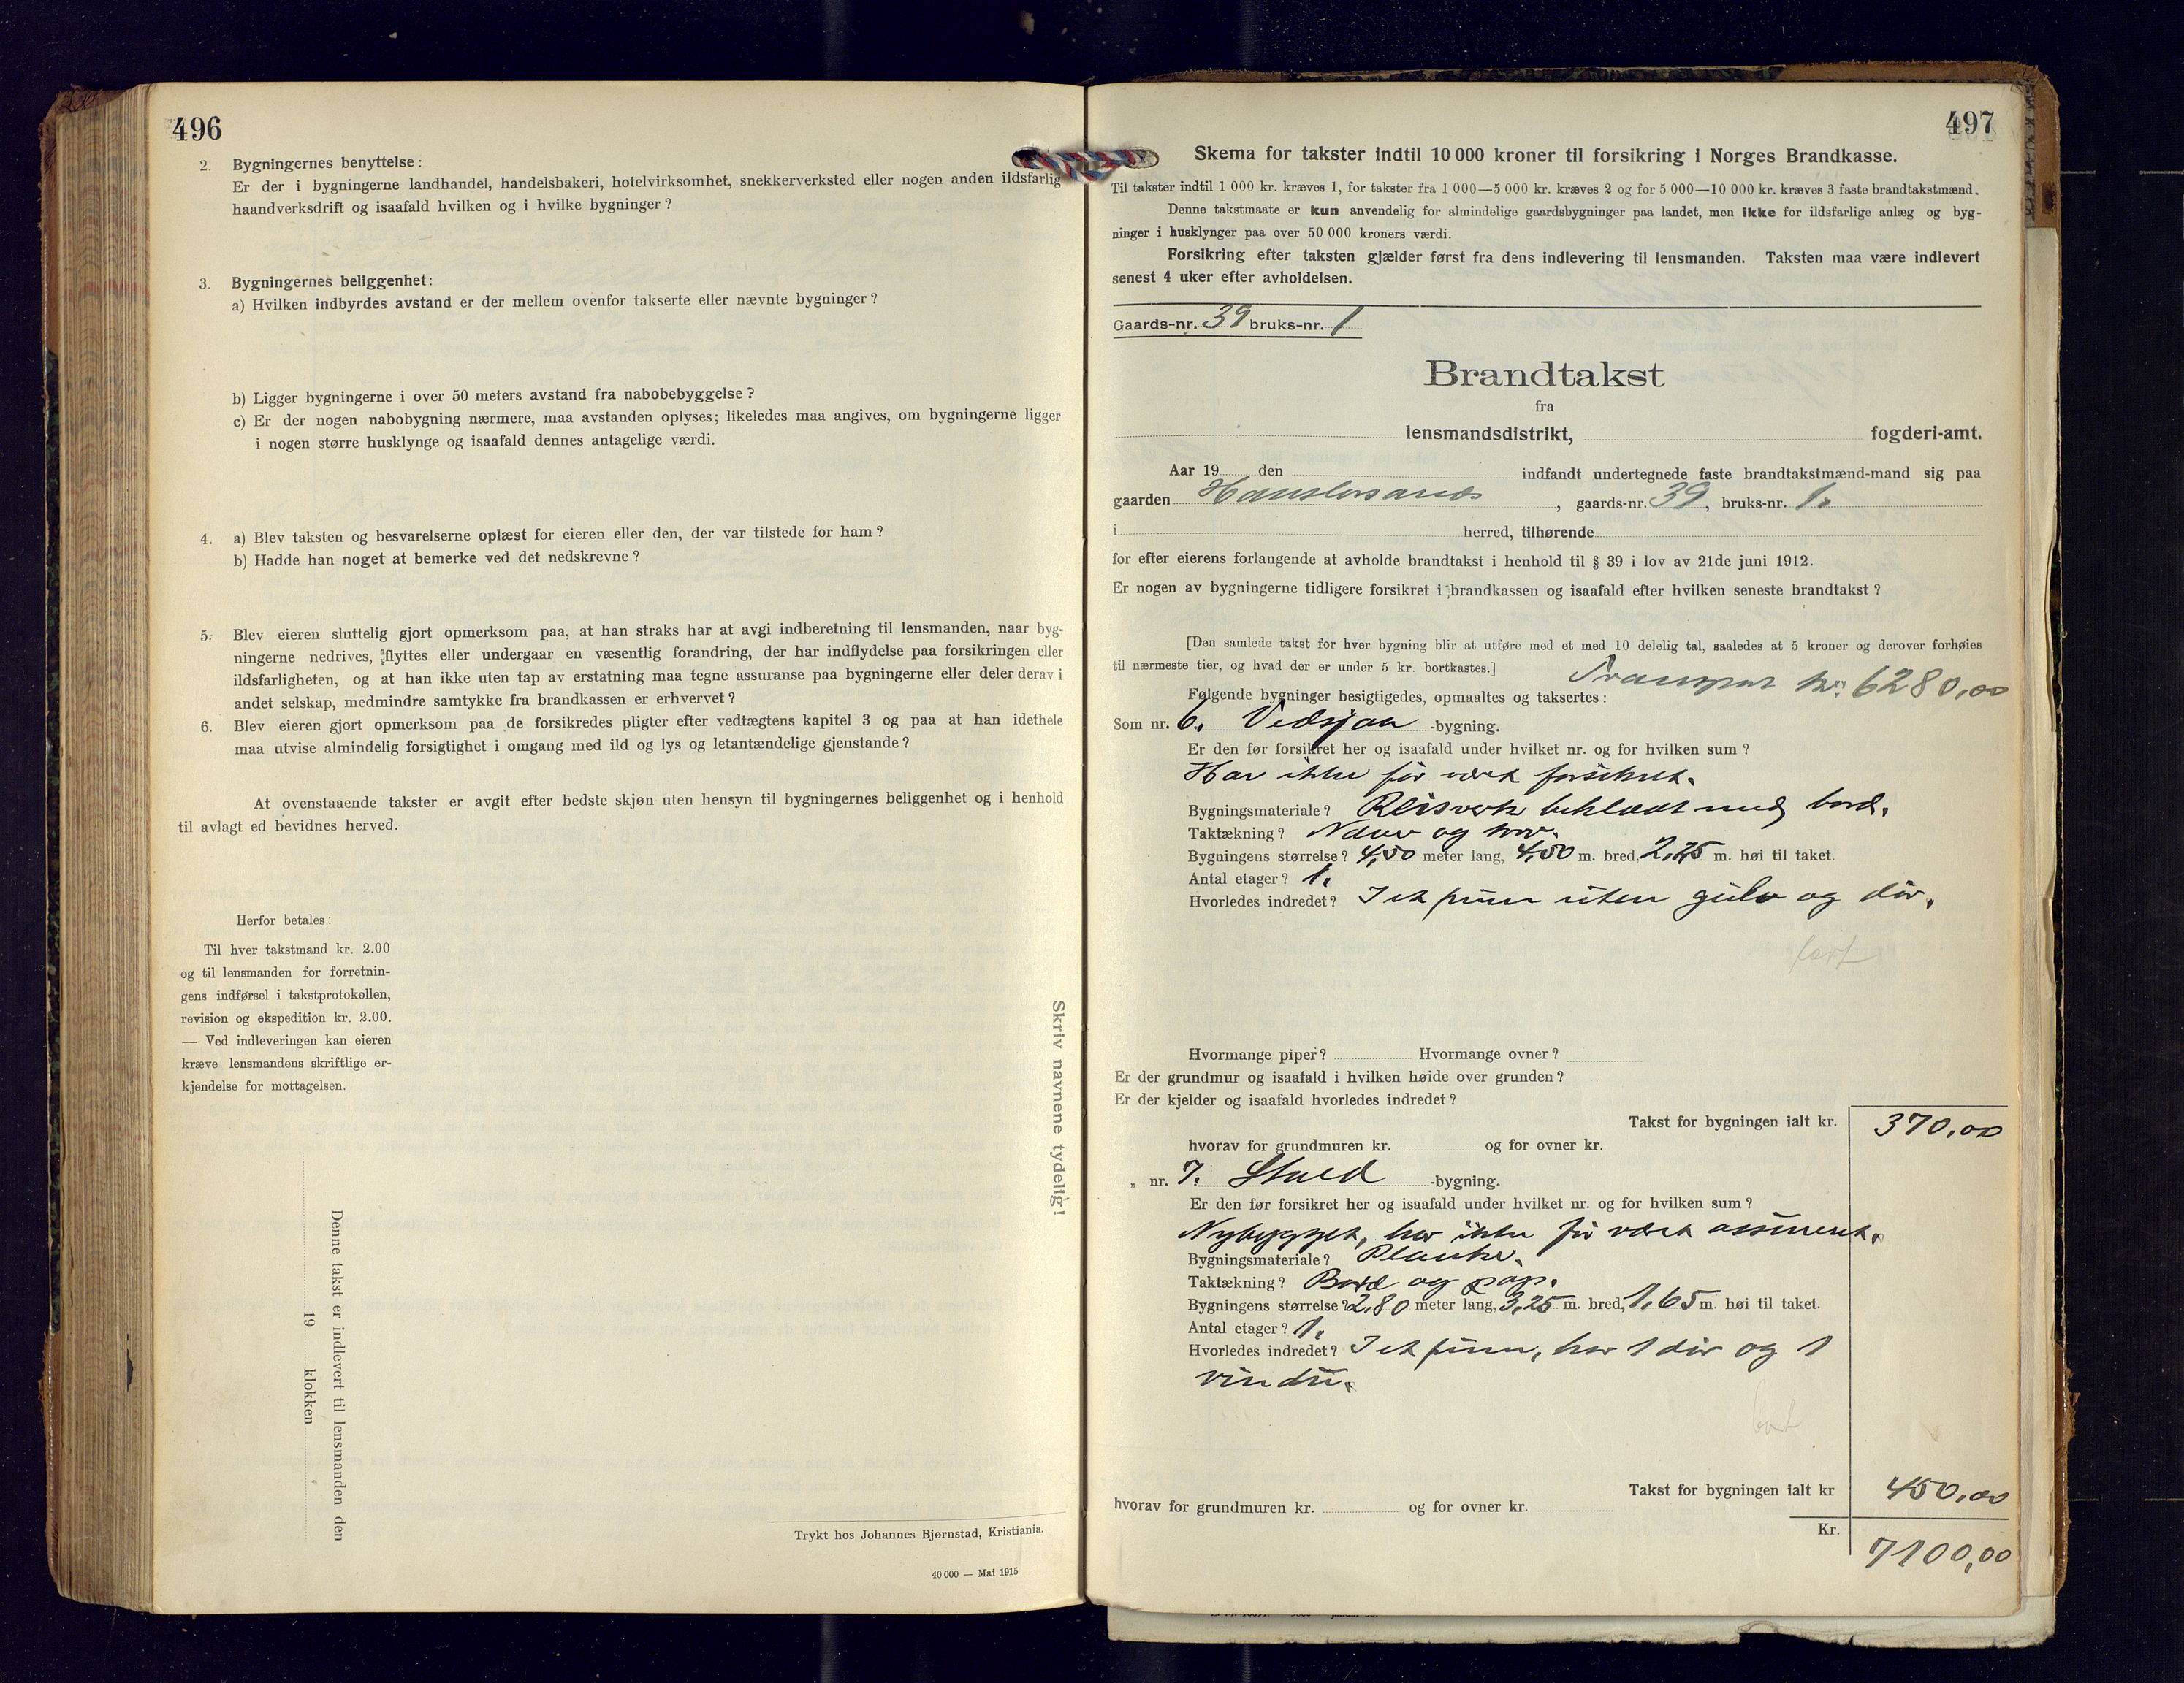 496
2. Bygningernes benyttelse:
Er der i bygningerne landhandel, handelsbakeri, hotelvirksomhet, snekkerverksted eller nogen anden ildsfarlig
haandverksdrift og isaafald hvilken og i hvilke bygninger?
3. Bygningernes beliggenhet:
a) Hvilken indbyrdes avstand er der mellem ovenfor takserte eller nævnte bygninger?
b) Ligger bygningerne i over 50 meters avstand fra nabobebyggelse?
c) Er der nogen nabobygning nærmere, maa avstanden oplyses; likeledes maa angives, om bygningerne ligger
i nogen større husklynge og isaafald dennes antagelige værdi.
4. a) Blev taksten og besvarelserne oplæst for eieren eller den, der var tilstede for ham?
b) Hadde han noget at bemerke ved det nedskrevne?
5. Blev eieren sluttelig gjort opmerksom paa, at han straks har at avgi indberetning til lensmanden, naar byg-
ningerne nedrives, flyttes eller undergaar en væsentlig forandring, der har indflydelse paa forsikringen eller
ildsfarligheten, og at han ikke uten tap av erstatning maa tegne assuranse paa bygningerne eller deler derav i
andet selskap, medmindre samtykke fra brandkassen er erhvervet?
6. Blev eieren gjort opmerksom paa de forsikredes pligter efter vedtægtens kapitel 3 og paa at han idethele
maa utvise almindelig forsigtighet i omgang med ild og lys og letantændelige gjenstande?
At ovenstaaende takster er avgit efter bedste skjøn uten hensyn til bygningernes beliggenhet og i henhold
til avlagt ed bevidnes herved.
Herfor betales:
Til hver takstmand kr. 2.00
og til lensmanden for forretnin-
gens indførsel i takstprotokollen,
revision og ekspedition kr. 2.00.
— Ved indleveringen kan eieren
kræve lensmandens skriftlige er-
kjendelse for mottagelsen.
Skriv navnene tydelig!
Denne takst er indlevert til lensmanden den
19 klokken
Trykt hos Johannes Bjørnstad, Kristiania.
40 000 — Mai 1915
497
Skema for takster indtil 10 000 kroner til forsikring i Norges Brandkasse.
Til takster indtil 1 000 kr. kræves 1, for takster fra 1 000—5 000 kr. kræves 2 og for 5 000—10 000 kr. kræves 3 faste brandtakstmænd.
Denne takstmaate er kun anvendelig for almindelige gaardsbygninger paa landet, men ikke for ildsfarlige anlæg og byg-
ninger i husklynger paa over 50 000 kroners værdi.
Forsikring efter taksten gjælder først fra dens indlevering til lensmanden. Taksten maa være indlevert
senest 4 uker efter avholdelsen.
Gaards-nr. 39 bruks-nr. 1
Brandtakst
fra
lensmandsdistrikt, fogderi-amt.
Aar 19 den indfandt undertegnede faste brandtakstmænd-mand sig paa
gaarden , gaards-nr. 39, bruks-nr. 1.
i herred, tilhørende
for efter eierens forlangende at avholde brandtakst i henhold til § 39 i lov av 21de juni 1912.
Er nogen av bygningerne tidligere forsikret i brandkassen og isaafald efter hvilken seneste brandtakst?
[Den samlede takst for hver bygning blir at utføre med et med 10 delelig tal, saaledes at 5 kroner og derover forhøies
til nærmeste tier, og hvad der er under 5 kr. bortkastes.]
Transport kr. 6280,00
Følgende bygninger besigtigedes, opmaaltes og taksertes:
Som nr. 6. Vedsjaa -bygning.
Er den før forsikret her og isaafald under hvilket nr. og for hvilken sum?
Har ikke før været forsikret.
Bygningsmateriale? Reisverk beklædt med bord.
Taktækning? Næver og torv.
Bygningens størrelse? 4,50 meter lang, 4,50 m. bred, 2,25 m. høi til taket.
Antal etager? 1.
Hvorledes indredet? I et rum uten gulv og dør.
bort
Hvormange piper? Hvormange ovner?
Er der grundmur og isaafald i hvilken høide over grunden?
Er der kjelder og isaafald hvorledes indredet?
Takst for bygningen ialt kr. 370,00
hvorav for grundmuren kr. og for ovner kr.
„ nr. 7. Skuld -bygning.
Er den før forsikret her og isaafald under hvilket nr. og for hvilken sum?
Nybygget, har ikke før været assureret.
Bygningsmateriale? Planker.
Taktækning? Bord og pap.
Bygningens størrelse? 2,80 meter lang, 3,25 m. bred, 1,65 m. høi til taket.
Antal etager? 1.
Hvorledes indredet? I et rum, har 1 dør og 1
vindu.
bort
Takst for bygningen ialt kr 450,00
hvorav for grundmuren kr. og for ovner kr.
Kr. 7100,00